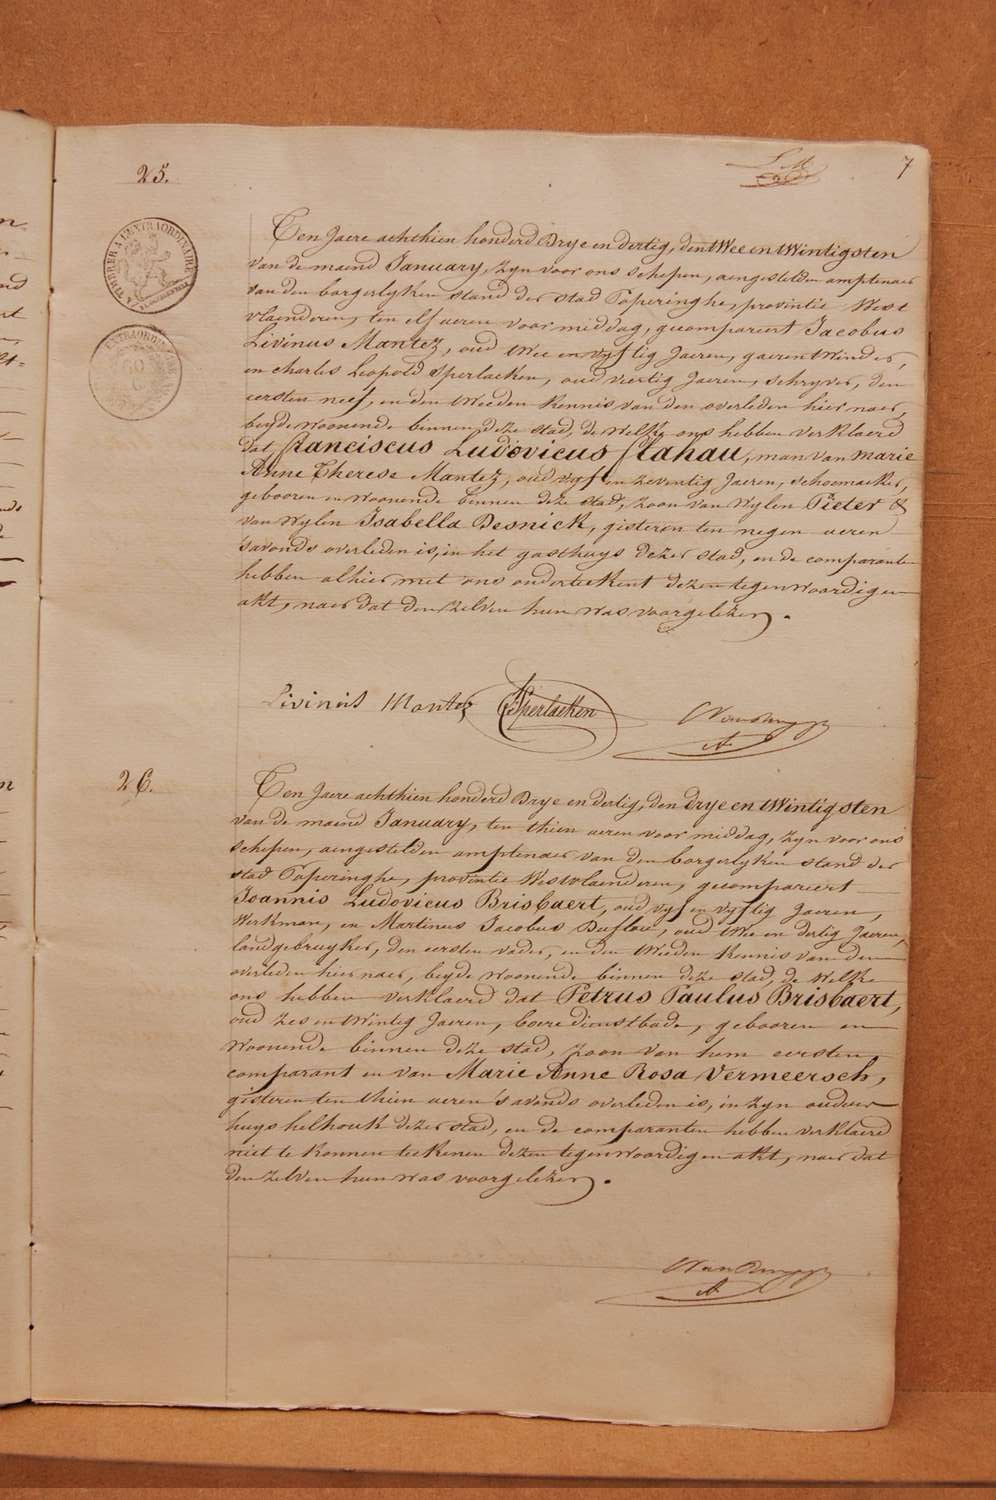 7
25.
TIMBRER A L'EXTRAORDINAIRE
Ten Jaere achthien honderd Drye en dertig, den twee en twintigsten
van de maend January, zyn voor ons schepen, aengestelden amptenaer
van den borgerlyken stand der stad Poperinghe, provintie West
vlaenderen, ten elf ueren voormiddag, gecompareert Jacobus
Livinus Mantez, oud twee en vyftig Jaeren, gaerentwinder,
en Charles Leopold Sperlaeken, oud viertig Jaeren, schryver, den
eersten neef, en den tweeden kennis van den overleden hier naer,
beyde woonende binnen deze stad, de welke ons hebben verklaerd
dat Franciscus Ludovicus Flahau, man van Marie
Anne Therese Mantez, oud vyf en zeventig Jaeren, schoemaeker,
gebooren en woonende binnen deze stad, zoon van wylen Pieter &
van wylen Isabella Desnick, gisteren ten negen ueren
s'avonds overleden is, in het gasthuys dezer stad, en de comparanten
hebben alhier met ons onderteekent dezen tegenwoordigen
akt, naer dat den zelven hun was voorgelezen.
Livinus Mantez Sperlaeken
26.
Ten Jaere achthien honderd Drye en dertig, den drye en twintigsten
van de maend January, ten thien ueren voormiddag, zyn voor ons
schepen, aengestelden amptenaer van den borgerlyken stand der
stad Poperinghe, provintie Westvlaenderen, gecompareert
Joannis Ludovicus Brisbaert, oud vyf en vyftig Jaeren,
Werkman, en Martinus Jacobus Beflou, oud twee en dertig Jaeren,
landgebruyker, den eersten vader, en den tweeden kennis van den
overleden hier naer, beyde woonende binnen deze stad, de welke
ons hebben verklaerd dat Petrus Paulus Brisbaert,
oud zes en twintig Jaeren, boere dienstbode, gebooren en
woonende binnen deze stad, zoon van hem eersten
comparant en van Marie Anne Rosa Vermeersch,
gisteren ten thien ueren s'avonds overleden is, in zyn ouders
huys helhouk dezer stad, en de comparanten hebben verklaerd
niet te konnen teekenen dezen tegenwoordigen akt, naer dat
den zelven hun was voorgelezen.